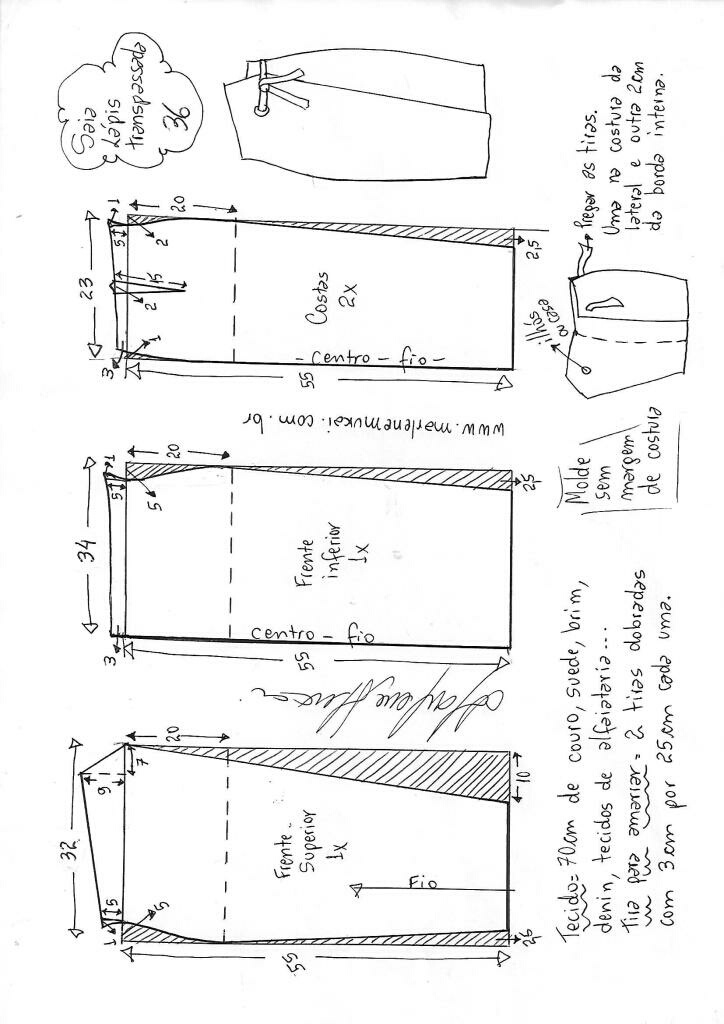 Saia
Lápis
transpassada
36
Pregar as tiras.
Uma na costura da
lateral e outra 2cm
da borda interna.
ilhós
ou casa
23
5
1
2
20
15
2
1
3
Costas
2X
- centro - fio -
55
2,5
www.marlenemukai.com.br
34
5
1
5
20
3
Frente
inferior
1X
centro - fio
55
2,5
Molde
sem
margem
de costura
32
9
7
20
5
1
5
Frente
Superior
1X
Fio
55
10
2,5
Tecido= 70cm de couro, suede, brim,
denin, tecidos de alfaiataria...
tira para amarrar= 2 tiras dobradas
com 3cm por 25cm cada uma.